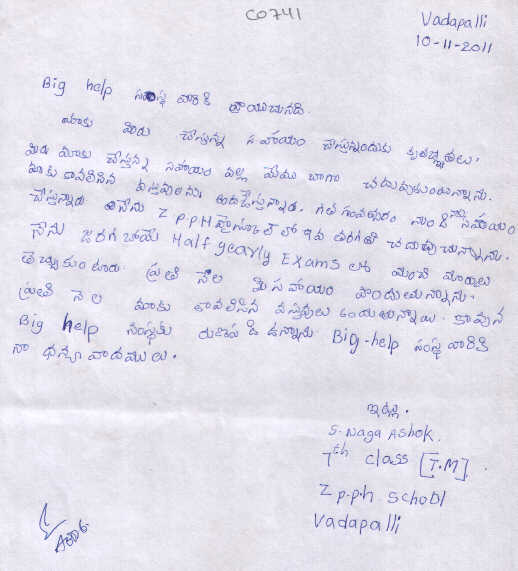 C0741
Vadapalli
10-11-2011
Big help సంస్థ వారికి వ్రాయునది.
మాకు మీరు చేస్తున్న సహాయం చేస్తున్నందుకు కృతజ్ఞతలు.
మీరు మాకు చేస్తున్న సహాయం వల్ల మేము బాగా చదువుకుంటున్నాను.
మాకు కావలసిన వస్తువులను అందిస్తున్నారు. గత సంవత్సరం నుండి సహాయం
చేస్తున్నారు నేను Z P P H హైస్కూల్ లో 7వ తరగతి చదువుచున్నాను.
నేను జరగబోయే Half yearly Exams లో మంచి మార్కులు
తెచ్చుకుంటాను. ప్రతి నెల మీ సహాయం పొందుతున్నాను.
ప్రతి నెల మాకు కావలసిన వస్తువులు అందుతున్నాయి. కావున
Big help సంస్థకు రుణపడి ఉన్నాను Big-help సంస్థ వారికి
నా ధన్యవాదములు.
ఇట్లు.
S. Naga Ashok.
7th class [T.M]
Z p.p.h school
Vadapalli